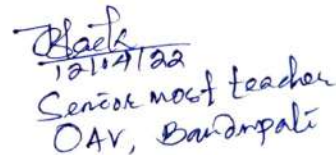 12/04/22
Senior most teacher
OAV, Bandmpali